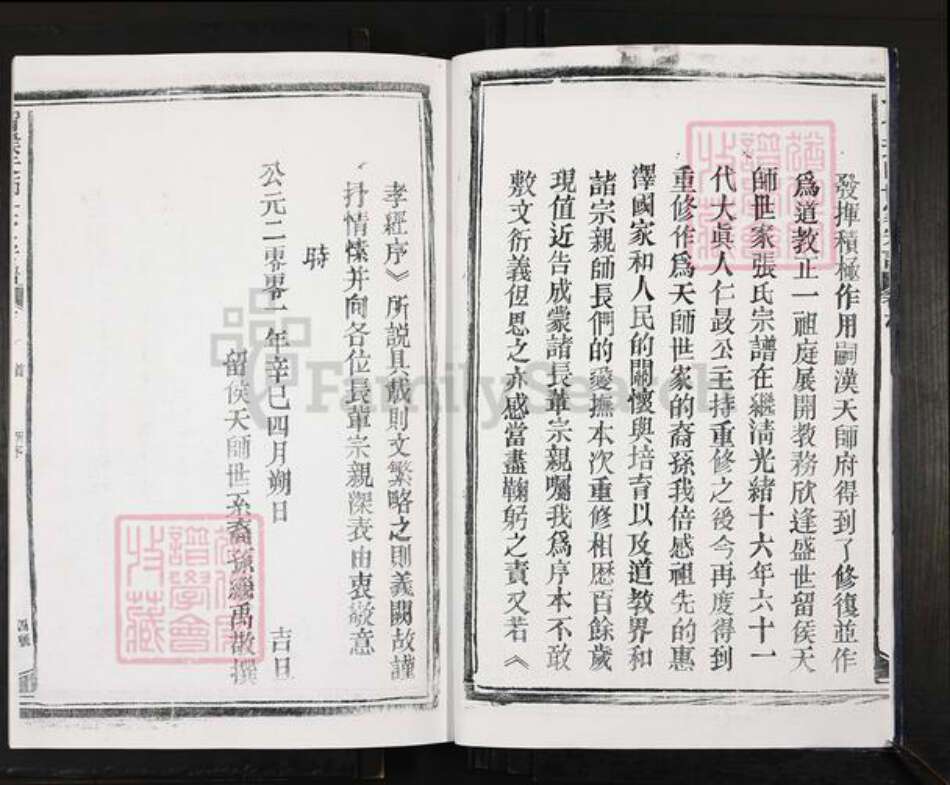 發揮積極作用嗣漢天師府得到了修復並作
爲道教正一祖庭展開教務欣逢盛世留侯天
師世家張氏宗譜在繼清光緒十六年六十一
代大眞人仁晸公主持重修之後今再度得到
重修作爲天師世家的裔孫我倍感祖先的惠
澤國家和人民的關懷與培育以及道教界和
諸宗親師長們的愛撫本次重修相歷百餘歲
現值近告成蒙諸長輩宗親囑我爲序本不敢
敷文衍義但思之亦感當盡鞠躬之責又若《
孝經序》所説具載則文繁略之則義闕故謹
抒情愫并向各位長輩宗親深表由衷敬意
時
公元二零零一年辛巳四月朔日 吉旦
留侯天師世系裔孫繼禹敬撰
首
四號
譜學會
收藏
譜學會
收藏
FamilySearch